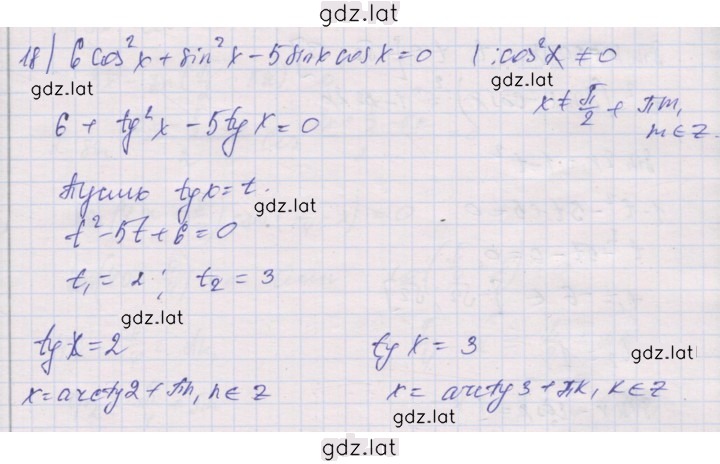 gdz.lat
18) 6 cos²x + sin²x - 5 sin x cos x = 0 | : cos²x ≠ 0
gdz.lat gdz.lat
x ≠ π/2 + πm,
m ∈ Z.
6 + tg²x - 5 tg x = 0
gdz.lat
Пусть tg x = t.
gdz.lat
t² - 5t + 6 = 0
t₁ = 2; t₂ = 3
gdz.lat
tg x = 2 tg x = 3
gdz.lat
x = arctg 2 + πn, n ∈ Z x = arctg 3 + πk, k ∈ Z
gdz.lat
gdz.lat